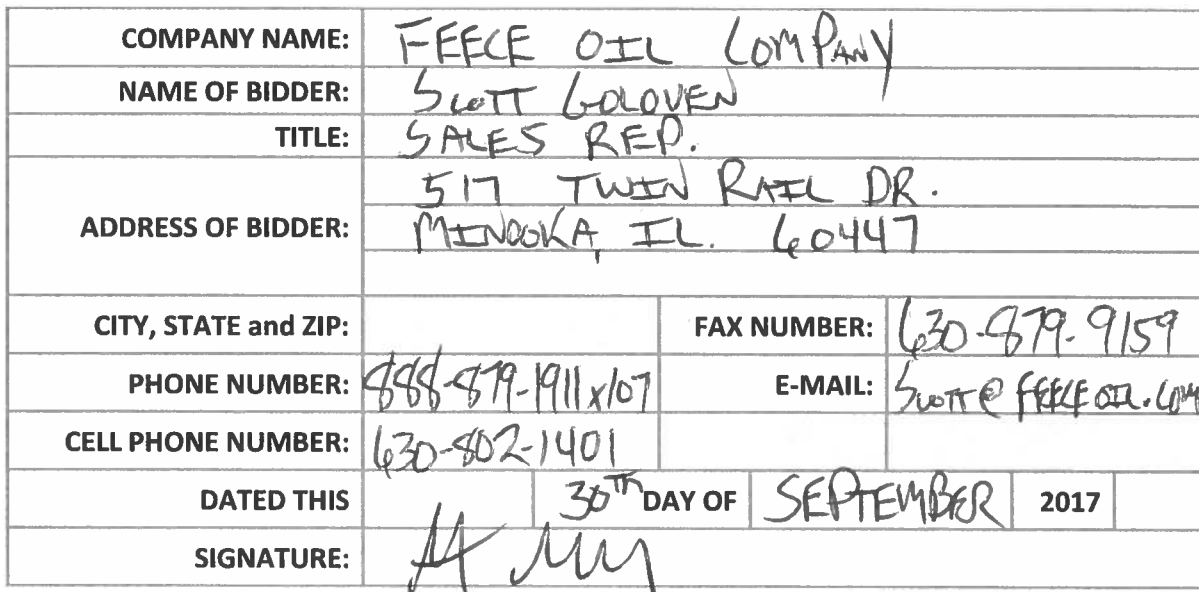 COMPANY NAME: FEECE OIL COMPANY
NAME OF BIDDER: SCOTT GOLOVEN
TITLE: SALES REP.
ADDRESS OF BIDDER: 517 TWIN RAIL DR.
MINOOKA, IL. 60447
CITY, STATE and ZIP: FAX NUMBER: 630-879-9159
PHONE NUMBER: 888-879-1911 x107 E-MAIL: SCOTT@FEECEOIL.COM
CELL PHONE NUMBER: 630-802-1401
DATED THIS 30TH DAY OF SEPTEMBER 2017
SIGNATURE: